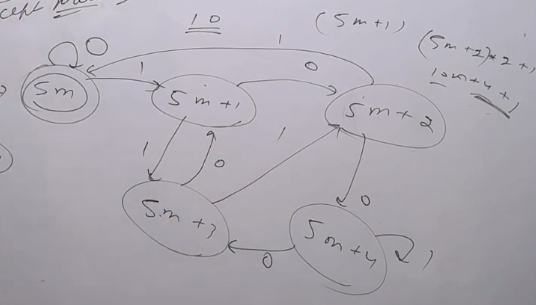 cept
10
(5m+1)
(5m+2)*2+1
10m+4+1
0
1
1
0
5m
5m+1
5m+2
1
0
1
0
5m+3
5m+4
0
1